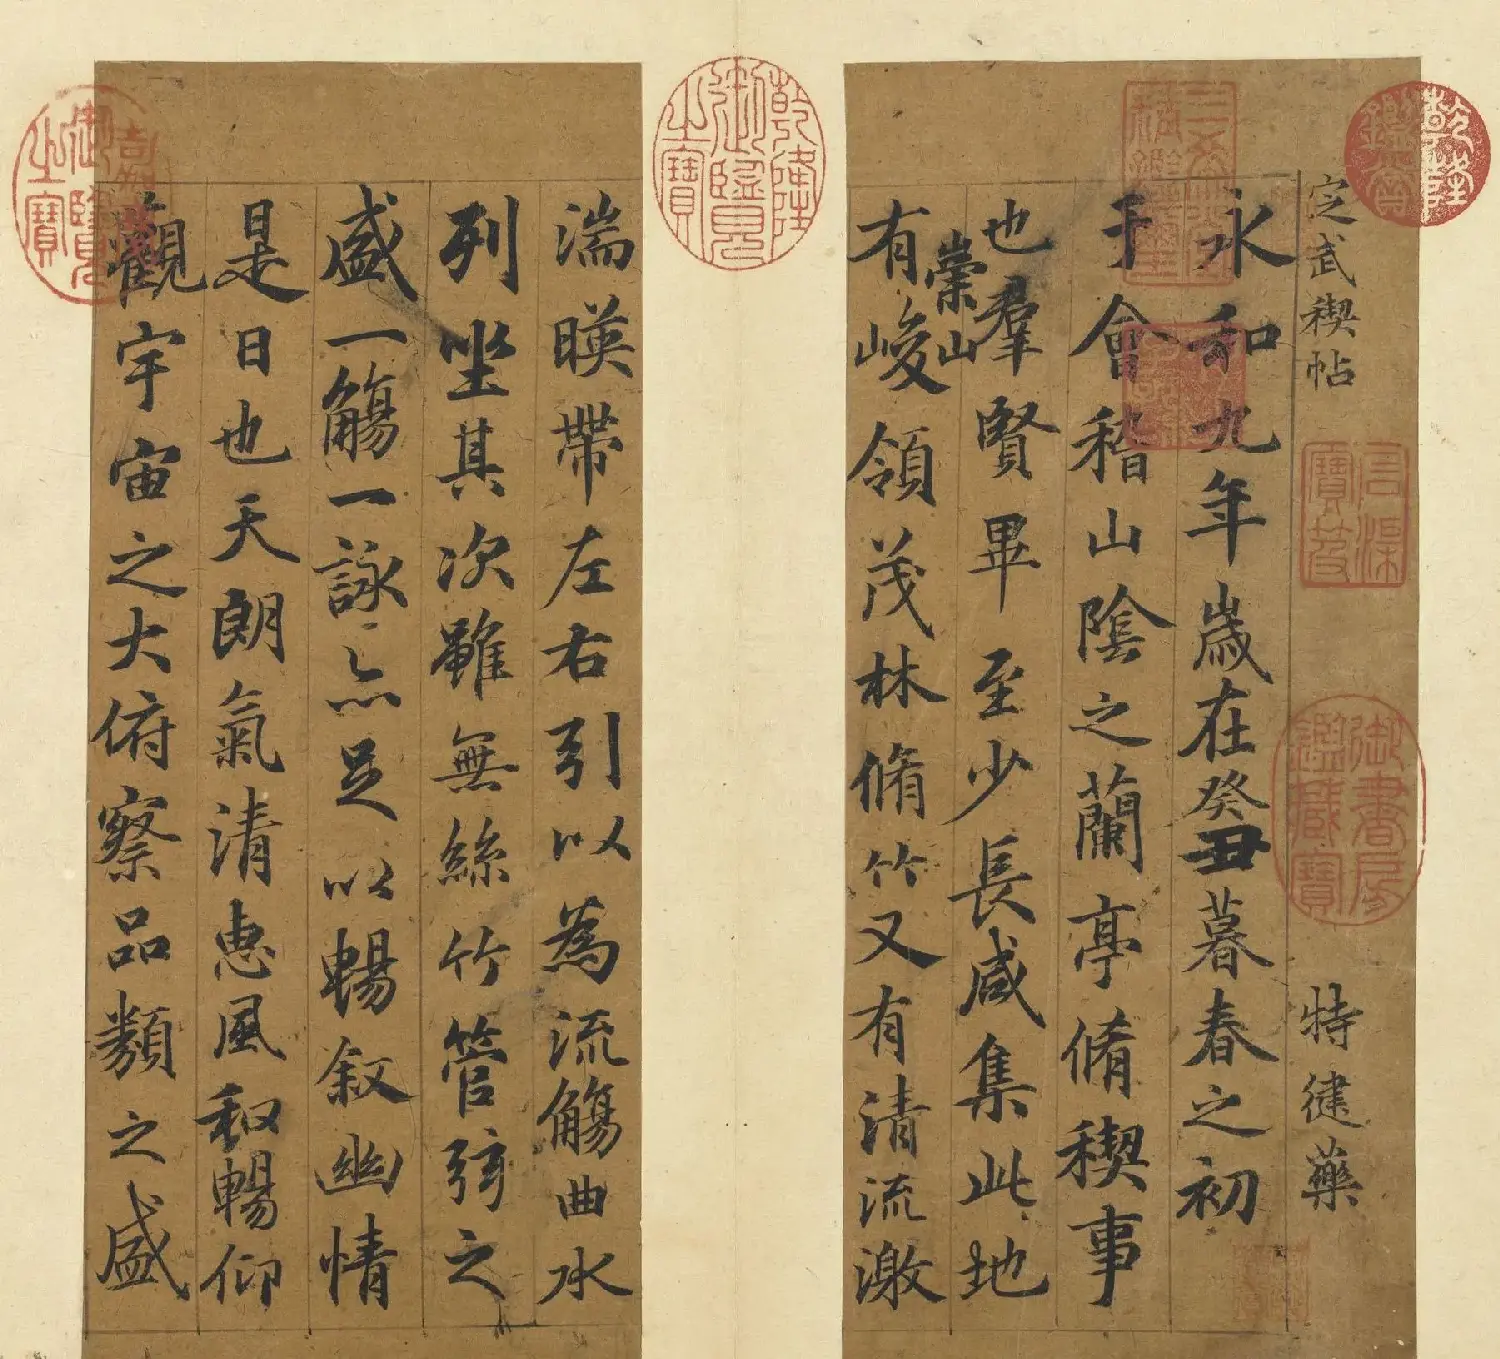 乾隆鑑賞
定武禊帖
特健藥
石渠寶笈
御書房鑑藏寶
三希堂精鑑璽
宜子孫
永和九年歲在癸丑暮春之初
于會稽山陰之蘭亭脩禊事
也羣賢畢至少長咸集此地
有崇山峻領茂林脩竹又有清流激
乾隆御覽之寶
湍暎帶左右引以為流觴曲水
列坐其次雖無絲竹管弦之
盛一觴一詠亦足以暢敘幽情
是日也天朗氣清惠風和暢仰
觀宇宙之大俯察品類之盛
嘉慶御覽之寶